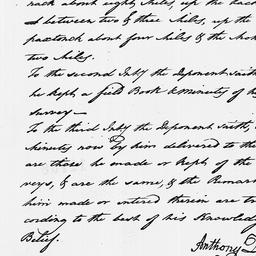 rack about eight Miles, up the
d between two & three Miles, up the
paxtonck about four Miles & the
two Miles.
To the second Inty the Deponent saith
he kept a field Book & minuty of
survey —
To the third Inty the Deponent saith,
minutes now by him delivered to the
are those he made or kept of the
veys, & are the same, & the Remar
him made or intered therein are tr
cording to the best of his Knowled
Belief.
Anthony D